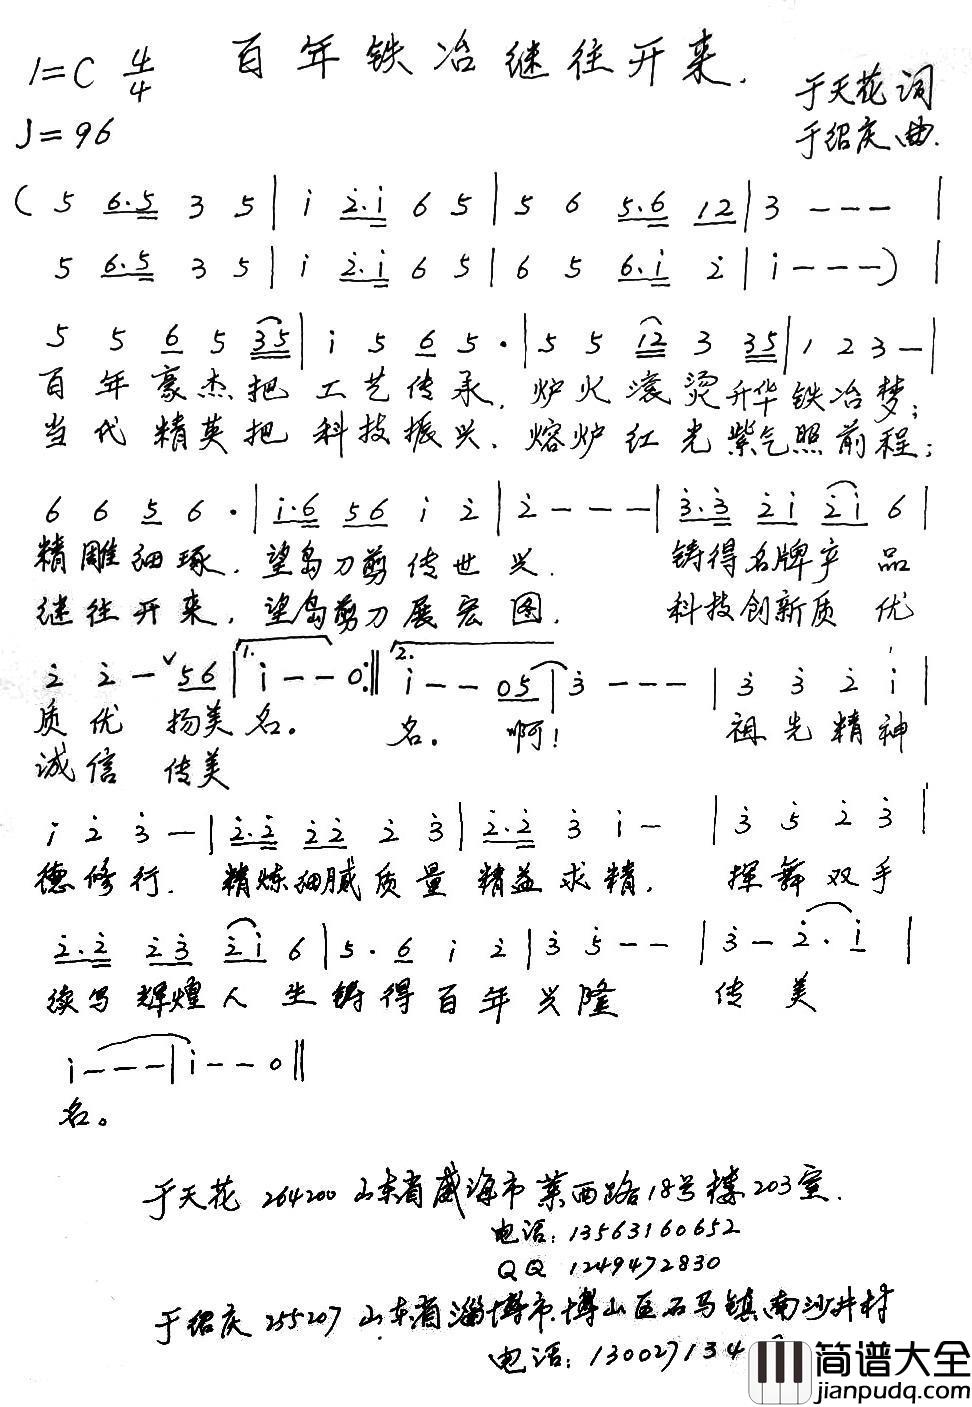 百年铁冶继往开来.
1=C 4/4
于天花词
♩=96
于绍庆曲.
( 5 6.5 3 5 | i 2̇.i 6 5 | 5 6 5.6 12 | 3 - - - |
5 6.5 3 5 | i 2̇.i 6 5 | 6 5 6.i 2̇ | i - - - ) |
5 5 6 5 35 | i 5 6 5 · | 5 5 12 3 35 | 1 2 3 - |
百年豪杰把工艺传承, 炉火滚烫升华铁冶梦;
当代精英把科技振兴. 熔炉红光紫气照前程;
6 6 5 6 · | i.6 56 i 2̇ | 2̇ - - - | 3̇.3̇ 2̇i 2̇i 6 |
精雕细琢. 望岛刀剪传世兴. 铸得名牌产品
继往开来, 望岛剪刀展宏图. 科技创新质优
2̇ 2̇ - ∨ 56 | 1. i - - 0 :‖ 2. i - - 05 | 3̇ - - - | 3̇ 3̇ 2̇ i |
质优 扬美名。 名。 啊! 祖先精神
诚信 传美
i 2̇ 3̇ - | 2̇.2̇ 2̇2̇ 2̇ 3̇ | 2̇.2̇ 3̇ i - | 3̇ 5̇ 2̇ 3̇ |
德修行. 精炼细腻质量 精益求精. 挥舞双手
2̇.2̇ 2̇3̇ 2̇i 6 | 5 · 6 i 2̇ | 3̇ 5̇ - - | 3̇ - 2̇ · i |
续写辉煌人生铸得百年兴隆 传美
i - - - | i - - 0 ‖
名。
于天花 264200 山东省威海市莱西路18号楼203室.
电话: 13563160652
QQ 1249472830
于绍庆 255207 山东省淄博市博山区石马镇南沙井村
电话: 130027134
简谱大全
jianpudq.com